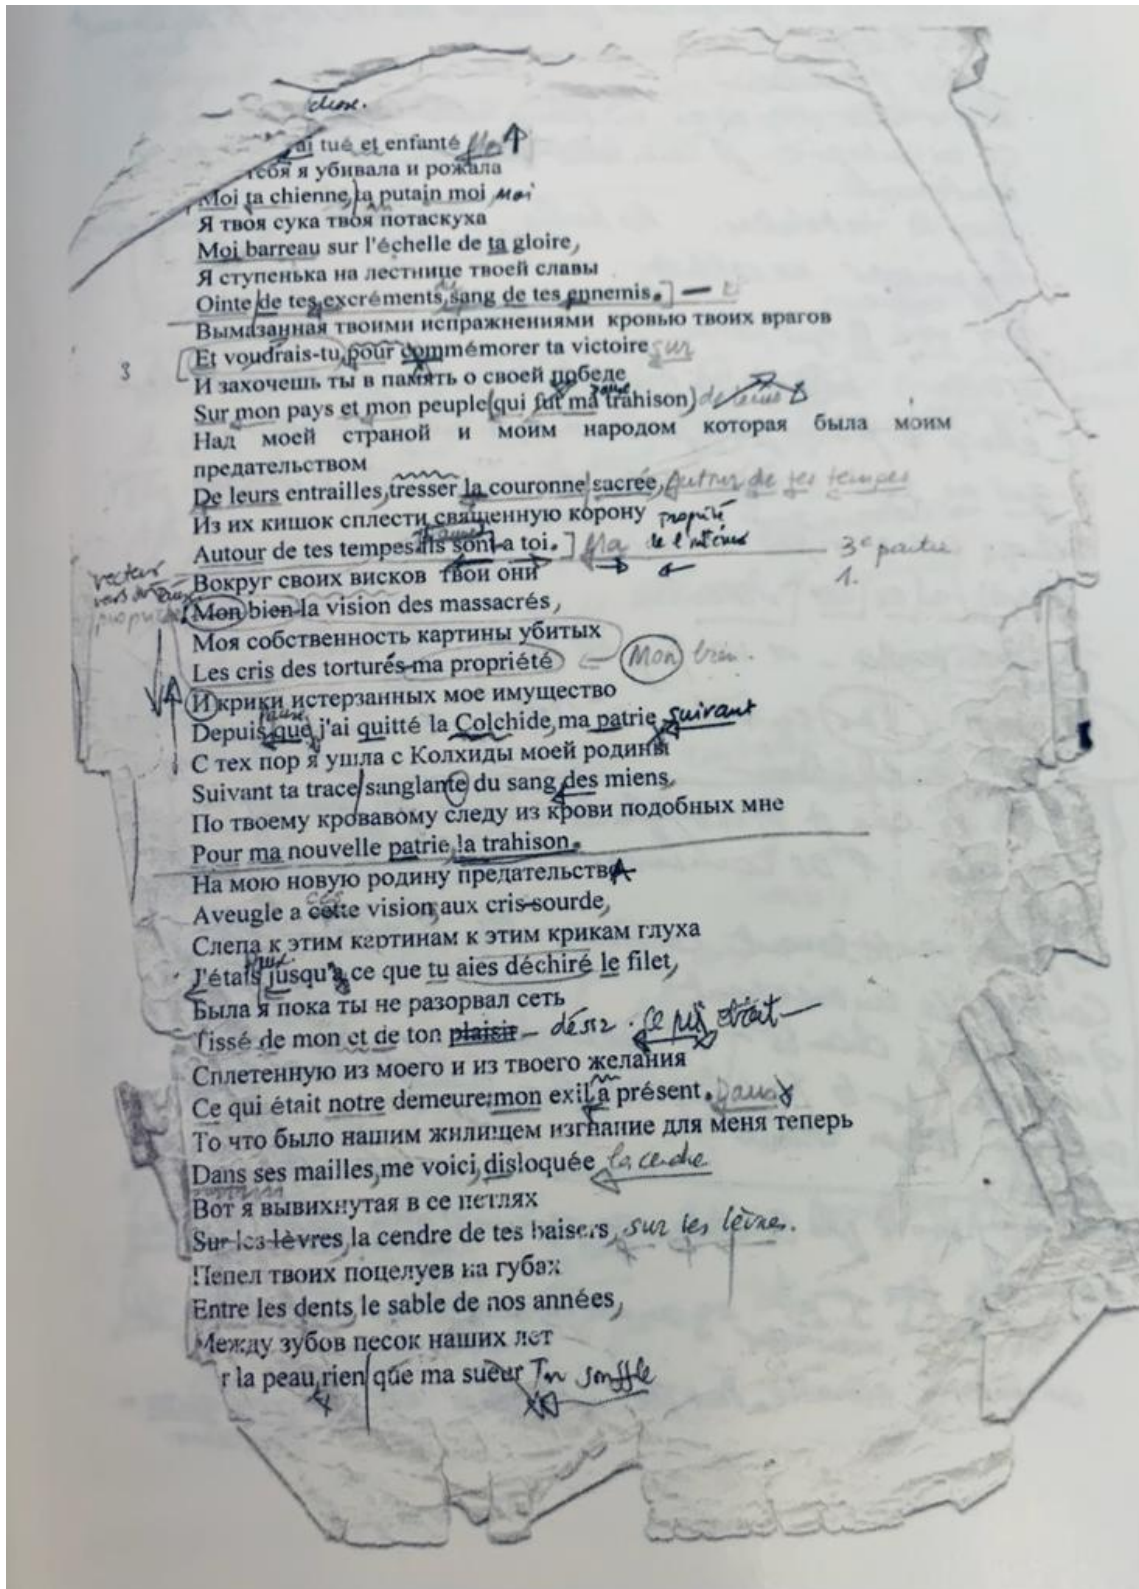 chose.
ai tué et enfanté
тебя я убивала и рожала
Moi ta chienne, ta putain moi Moi
Я твоя сука твоя потаскуха
Moi barreau sur l'échelle de ta gloire,
Я ступенька на лестнице твоей славы
Ointe de tes excréments, sang de tes ennemis.
Вымазанная твоими испражнениями кровью твоих врагов
3 Et voudrais-tu, pour commémorer ta victoire sur
И захочешь ты в память о своей победе
Sur mon pays et mon peuple (qui fut ma trahison)
Над моей страной и моим народом которая была моим
предательством
De leurs entrailles, tresser la couronne sacrée, Autour de tes tempes
Из их кишок сплести священную корону propriété
Autour de tes tempes. Ils sont a toi. Ma de l'intérieur 3e partie
Вокруг своих висков твои они 1.
vecteur vers
Mon bien la vision des massacrés,
Моя собственность картины убитых
Les cris des torturés ma propriété Mon bien.
И крики истерзанных мое имущество
pause
Depuis que j'ai quitté la Colchide, ma patrie suivant
С тех пор я ушла с Колхиды моей родины
Suivant ta trace sanglante du sang des miens,
По твоему кровавому следу из крови подобных мне
Pour ma nouvelle patrie, la trahison.
На мою новую родину предательства
Aveugle a cette vision, aux cris sourde,
Слепа к этим картинам к этим крикам глуха
J'étais jusqu'a ce que tu aies déchiré le filet,
Была я пока ты не разорвал сеть
Tissé de mon et de ton plaisir désir. Ce qui était
Сплетенную из моего и из твоего желания
Ce qui était notre demeure: mon exil a présent. Dans
То что было нашим жилищем изгнание для меня теперь
Dans ses mailles, me voici, disloquée la cendre
Вот я вывихнутая в се петлях
Sur les lèvres, la cendre de tes baisers, sur les lèvres.
Пепел твоих поцелуев на губах
Entre les dents, le sable de nos années,
Между зубов песок наших лет
r la peau, rien que ma sueur Ton souffle